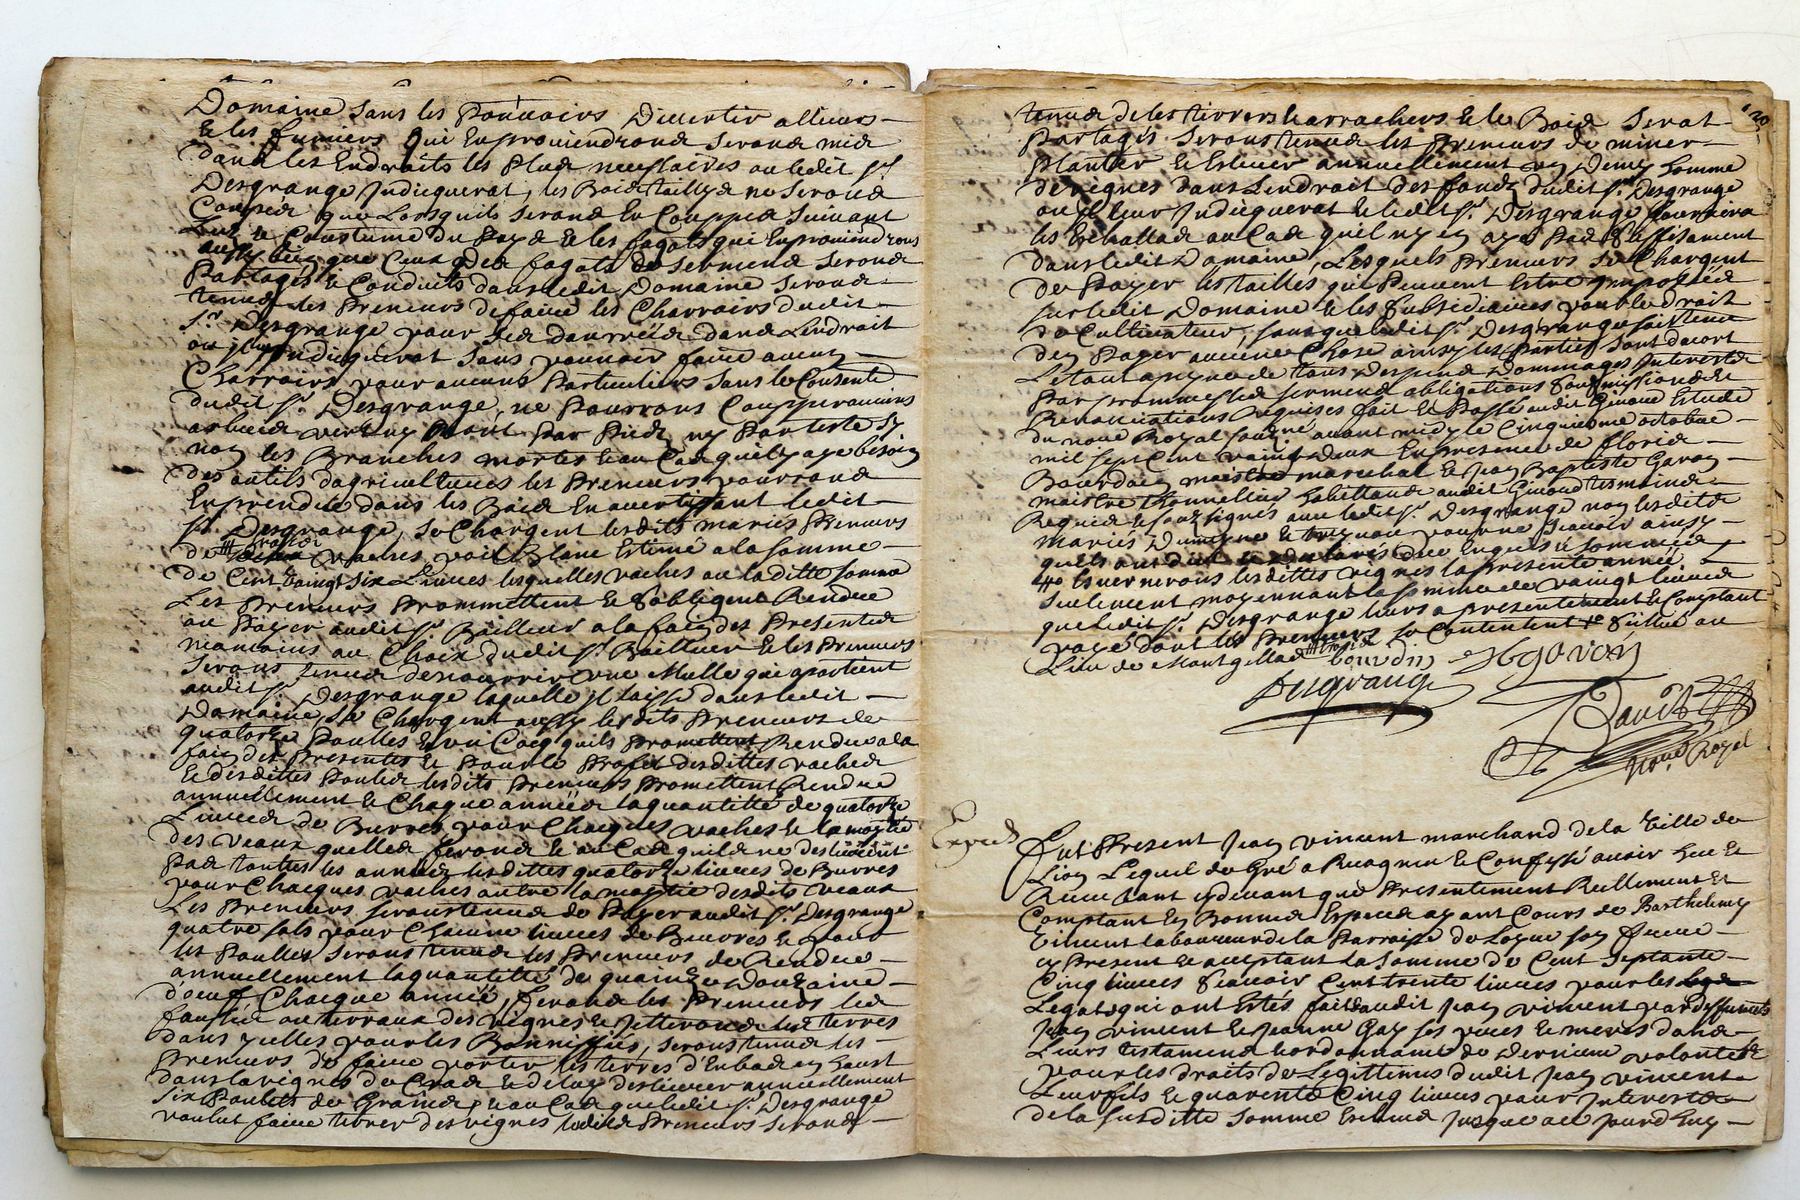 Domaine sans les pouvoirs divertir allieurs
et les fumiers qui en proviendrond serond mis
dans les endroits les plus necessaires ou ledit Sr
Desgrange Indicquerat, les Bois tailly ne serond
Couppés que lors quils serond en Couppes suivant
Coustume du pays et les fagots qui en proviendrons
aussy bien que Ceux des fagots de serments serond
Partagés et Conduits dans ledit Domaine serond
tenus les Preneurs de faire les Charrois dudit
Sr Desgrange pour ses danrées dans Lendroit
ou il Indicquerat sans pouvoir faire aucuns
Charrois pour aucuns particuliers sans le Consente
dudit Sr Desgrange, ne pourrons Coupper aucuns
arbres vert ny mort par pieds ny par teste sy
non les Branches mortes et au Cas quil y aye besoin
des outils dagriculteures les Preneurs pourrond
En prendre dans les Bois En avertissant ledit
Sr Desgrange, se Chargent lesdits mariés Preneurs
de vaches poil Blanc Estimé a la somme
de Cent vaingt six Livres lesquelles vaches ou laditte somme
Les Preneurs Promettent et sobligent Rendre
ou Payer audit Sr Bailleur a la fain des Presentes
au Choix dudit Sr Bailleur et les Preneurs
serons tenus de nourrir une Mulle qui apartient
audit Sr Desgrange laquelle il laisse dans ledit
Domaine, se Chargent aussy lesdits Preneurs de
quatorze Poulles et un Cocq quils promettent Rendre a la
fain des Presentes et pour le Profit desdittes vaches
et desdittes Poulles lesdits Preneurs Promettent Rendre
annuellement et Chaque année la quantitté de quatorze
Livres de Burres pour Chacques vaches et la moytié
des veaux quelles ferond et au Cas quil ne
pas touttes les années lesdittes quatorze livres de Burres
pour Chacques vaches outre la moytié desdits veaux
Les Preneurs serons tenus de Payer audit Sr Desgrange
quatre sols pour Chacune livres de Beurres et pour
les Poulles serons tenus les Preneurs de Rendre
annuellement la quantitté de quainze Douzaine
d'oeuf Chacque année, ferond les Preneurs les
fausses ou terraux des vignes et Jetterond les terres
dans ycelles pour les Bonniffier, serons tenus les
Preneurs de faire porter les terres d'Enbas en haut
dans la vignes du Cras et de luy deslivrer annuellement
six Poulets de Grains, et au Cas que ledit Sr Desgrange
voulut faire tirrer des vignes lesdits Preneurs serond
tenus de les tirrer et arracher et le Bois serat
Partagés serons tenus les Preneurs de miner
Planter et Eslever annuellement un Demy homme
de vignes dans Lendroit des fonds dudit Sr Desgrange
ou il leur Indicquerat et ledit Sr Desgrange fournira
les Echallas au Cas quil ny en aye pas suffisament
dans ledit Domaine, Lesquels Preneurs se Chargent
de Payer les tailles qui peuvent Estre Imposées
sur ledit Domaine et les subsidiaires pour le droit
de Cultivateur, sans que ledit Sr Desgrange soit tenu
den Payer aucune Chose ainsy les Parties sont dacort
Letout a peyne de tous Despens Dommages Interests
Par promesses serment obligations soubmissions et
Renonciations requises fait et Passé audit Givord Estude
du no.re Royal soubigné avant midy le Cinquieme octobre
mil sept Cent vaingt deux En presence de floris
Bourdain maistre marechal et Jean Baptiste Gavon
maistre thonnellier habittans audit Givord tesmoins
Requis et soubsignés avec ledit Sr Desgrange non lesdits
mariés pour ne sçavoir ainsy
quils ont dit et declaré de ce Enquis et sommés
les dittes vignes la presente année
seulement moyennant la somme de vaingt livres
que ledit Sr Desgrange leurs a presentement et Comptant
payé dont les Preneurs se Contentent
Lieu de Montgellas bourdin JBgavon
Desgrange
no.re Royal
Expedié
Fut Present Jean Vincent marchand de la ville de
Lion Lequel de Gré a Recogneu et Confessé avoir heu et
Receu tant cydevant que Presentement Reellement et
Comptant En Bonnes Especes ayant Cours de Barthelemy
Vincent laboureur de la Parroisse de Loyre son frere
cy Present et aceptant la somme de Cent septante
Cinq livres scavoir Cent trente livres pour les
Legats qui ont Estés fait audit Jean Vincent par deffuncts
Jean Vincent et Jeanne Gay ses peres et meres dans
Leurs testaments et ordonnance de derniere volontés
pour les droits de Legittimes dudit Jean Vincent
Leur fils et quarente Cinq livres pour Interests
de la susditte somme Escheus jusque aujourd huy